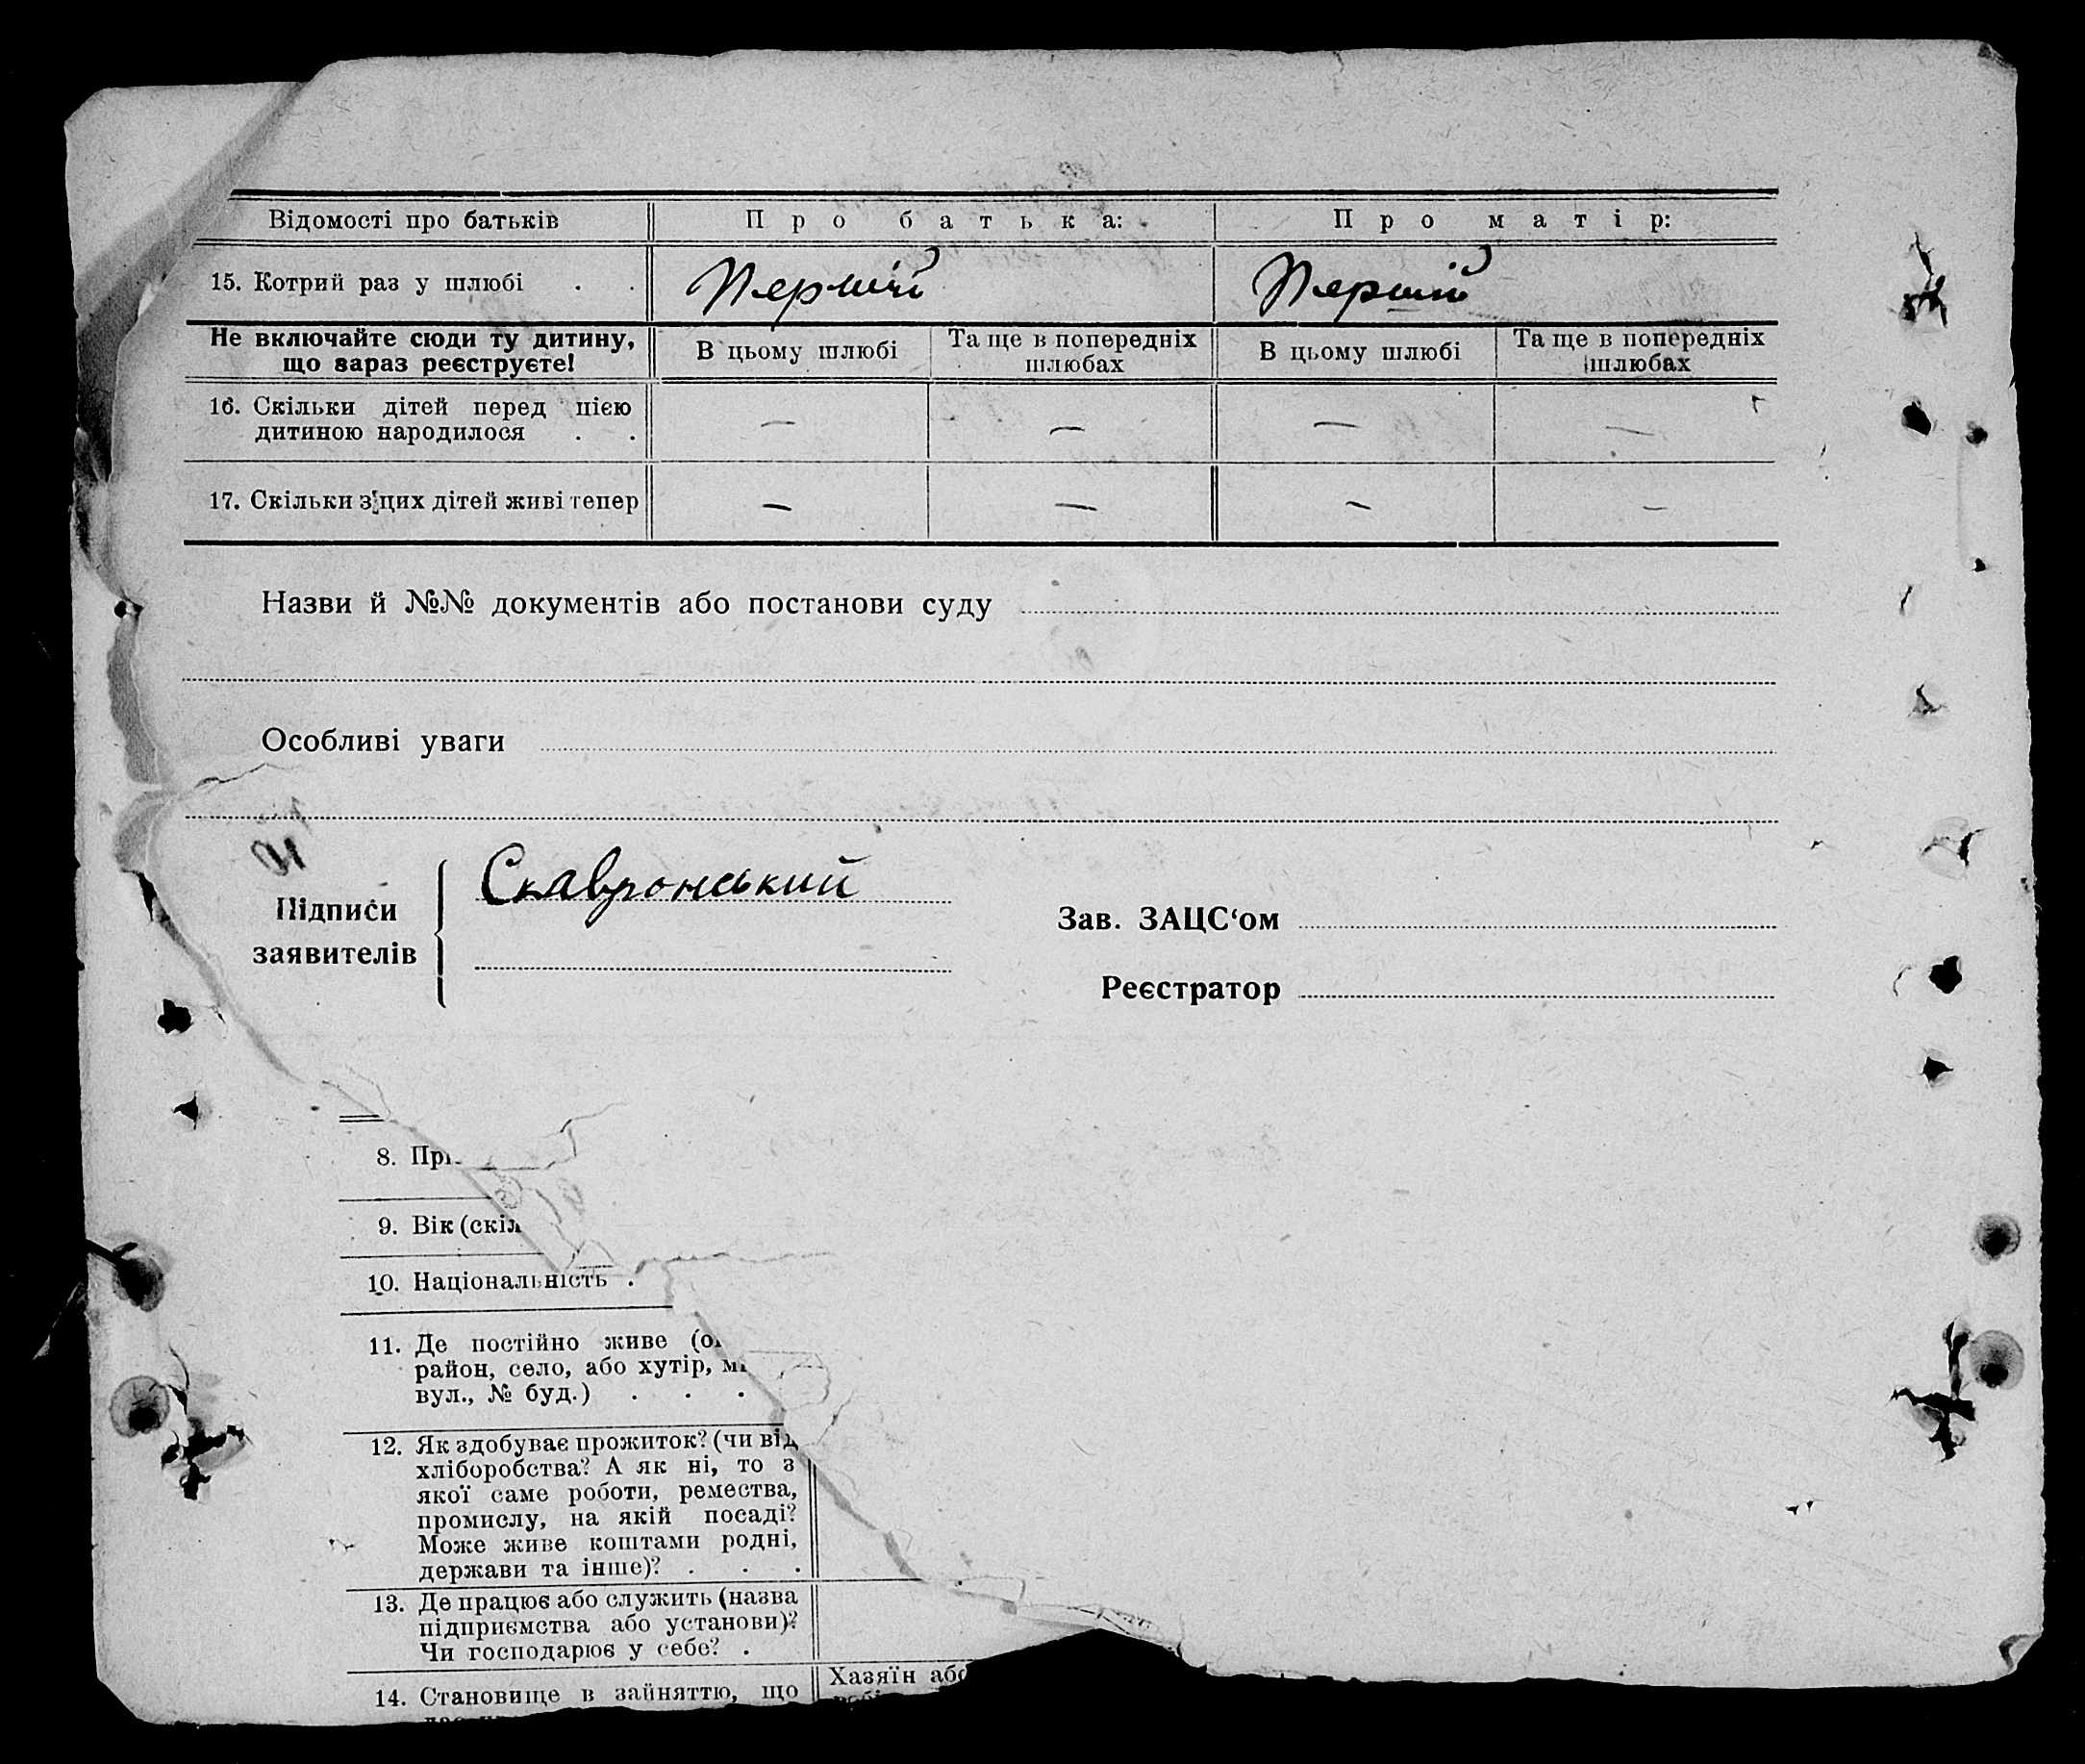 Відомості про батьків Про батька: Про матір:
15. Котрий раз у шлюбі . . Перший Перший
Не включайте сюди ту дитину,
що зараз реєструєте!
В цьому шлюбі
Та ще в попередніх
шлюбах
В цьому шлюбі
Та ще в попередніх
шлюбах
16. Скільки дітей перед цією
дитиною народилося . . — — — —
17. Скільки з цих дітей живі тепер — — — —
Назви й №№ документів або постанови суду
Особливі уваги
Підписи
заявителів
Скавронський
Зав. ЗАЦС‘ом
Реєстратор
8.
9. Вік (скіл
10. Національність .
11. Де постійно живе
район, село, або хутір,
вул., № буд.) . . .
12. Як здобуває прожиток? (чи від
хліборобства? А як ні, то з
якої саме роботи, ремества,
промислу, на якій посаді?
Може живе коштами родні,
держави та інше)? . . .
13. Де працює або служить (назва
підприємства або установи)?
Чи господарює у себе? .
14. Становище в зайняттю, що
Хазяїн або